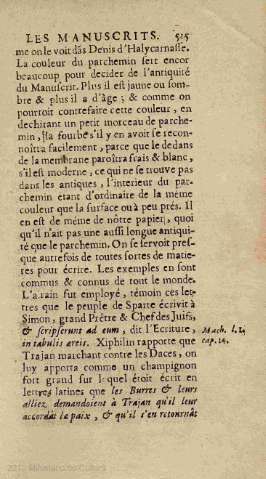 LES MANUSCRITS. 525
me on le voit dãs Denis d'Halycarnasse.
La couleur du parchemin sert encor
beaucoup pour decider de l'antiquité
du Manuscrit. Plus il est jaune ou som-
bre & plus il a d'âge ; & comme on
pourroit contrefaire cette couleur, en
dechirant un petit morceau de parche-
min, la fourbe s'il y en avoit se recon-
noîtra facilement, parce que le dedans
de la membrane paroîtra frais & blanc,
s'il est moderne, ce qui ne se trouve pas
dans les antiques, l'interieur du par-
chemin etant d'ordinaire de la même
couleur que la surface ou à peu prés. Il
en est de même de nôtre papier, quoi
qu'il n'ait pas une aussi longue antiqui-
té que le parchemin. On se servoit pres-
que autrefois de toutes sortes de matie-
res pour écrire. Les exemples en sont
communs & connus de tout le monde.
L'airain fut employé, témoin ces let-
tres que le peuple de Sparte écrivit à
Simon, grand Prêtre & Chef des Juifs,
& scripserunt ad eum, dit l'Ecriture,
in tabulis æreis. Xiphilin rapporte que
Trajan marchant contre les Daces, on
luy apporta comme un champignon
fort grand sur lequel étoit écrit en
lettres latines que les Burres & leurs
alliez demandoient à Trajan qu'il leur
accordât la paix, & qu'il s'en retournât
Mach. l. 1.
cap. 14.
Ministerio de Cultura